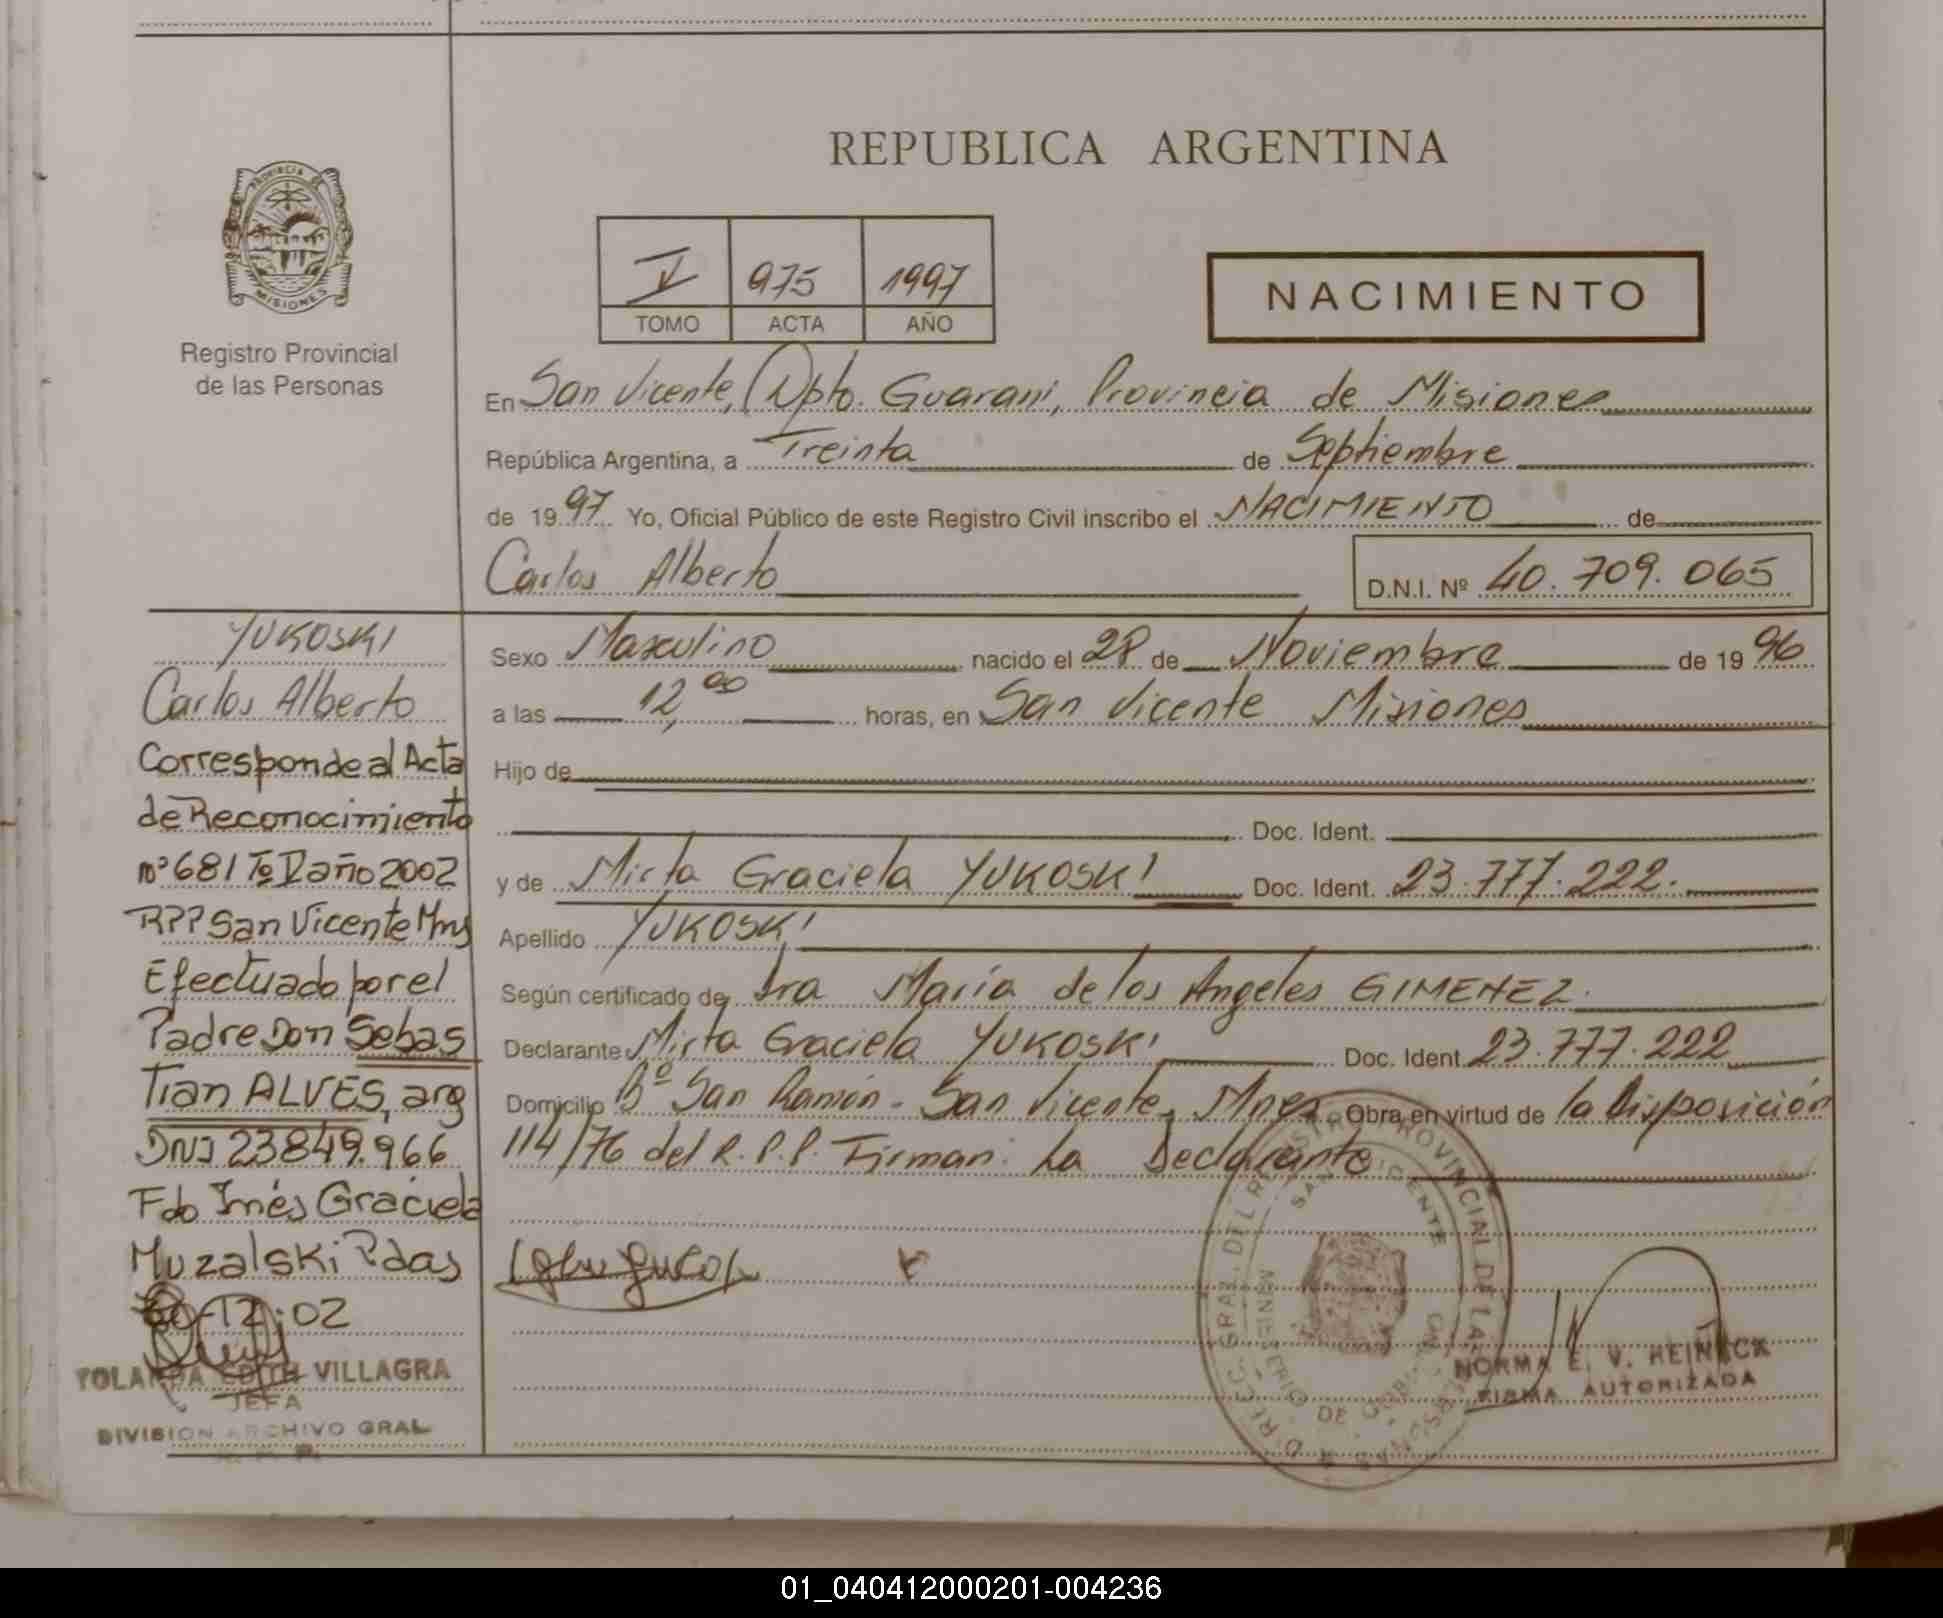 PROVINCIA DE
MISIONES
Registro Provincial
de las Personas
REPUBLICA ARGENTINA
V 975 1997
TOMO ACTA AÑO
NACIMIENTO
En San Vicente, Dpto. Guaraní, Provincia de Misiones
República Argentina, a Treinta de Septiembre
de 1997 Yo, Oficial Público de este Registro Civil inscribo el NACIMIENTO de
Carlos Alberto D.N.I. Nº 40.709.065
Sexo Masculino nacido el 28 de Noviembre de 1996
a las 12,00 horas, en San Vicente Misiones
Hijo de
Doc. Ident.
y de Mirta Graciela YUKOSKI Doc. Ident. 23.777.222.
Apellido YUKOSKI
Según certificado de Dra María de los Angeles GIMENEZ.
Declarante Mirta Graciela YUKOSKI Doc. Ident. 23.777.222
Domicilio Bº San Ramón - San Vicente, Mnes. Obra en virtud de la Disposición
114/76 del R.P.P. Firman: La Declarante
YUKOSKI
Carlos Alberto
Corresponde al Acta
de Reconocimiento
nº 681 Tº V año 2002
RPP San Vicente Mns
Efectuado por el
Padre Don Sebas
Tian ALVES, arg
DNI 23849.966
Fdo Inés Graciela
Muzalski Pdas
12:02
YOLANDA EDITH VILLAGRA
JEFA
DIVISION ARCHIVO GRAL
NORMA E. V. HEINECK
FIRMA AUTORIZADA
SAN VICENTE
01_040412000201-004236